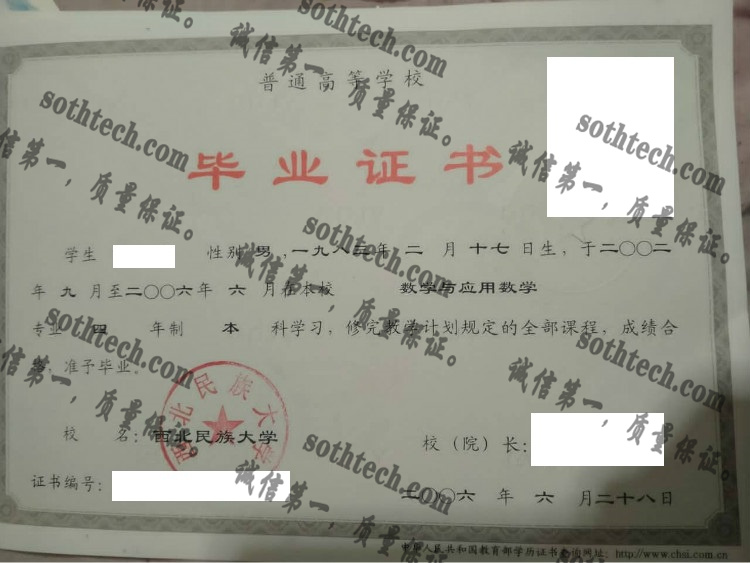 普通高等学校
毕业证书
学生 性别 男，一九八三年 二 月 十七 日生，于二〇〇二
年 九 月至二〇〇六年 六 月在本校 数学与应用数学
专业 四 年制 本 科学习，修完教学计划规定的全部课程，成绩合
，准予毕业。
校 名：西北民族大学 校（院）长：
西北民族大学
证书编号：
二〇〇六 年 六 月二十八日
中华人民共和国教育部学历证书查询网址：http://www.chsi.com.cn
sothtech.com
诚信第一，质量保证。
sothtech.com
诚信第一，质量保证。
sothtech.com
诚信第一，质量保证。
sothtech.com
诚信第一，质量保证。
sothtech.com
诚信第一，质量保证。
sothtech.com
诚信第一，质量保证。
sothtech.com
诚信第一，质量保证。
sothtech.com
诚信第一，质量保证。